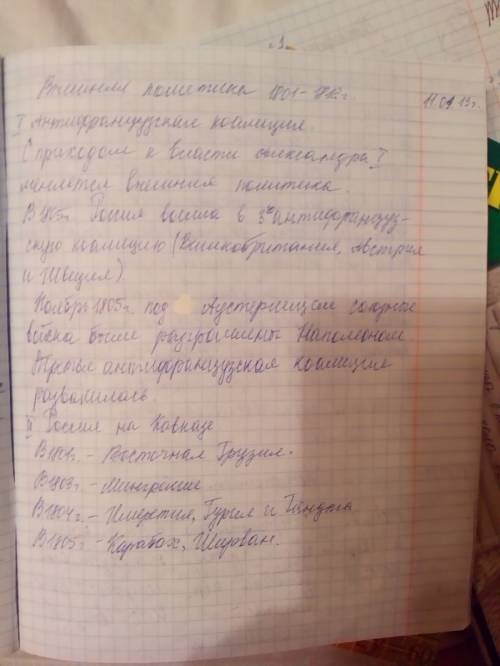 Внешняя политика 1801-1812г. 11.09.19г.
I Антифранцузская коалиция.
С приходом к власти Александра I
меняется внешняя политика.
В 1805г. Россия вошла в 3ю антифранцуз-
скую коалицию (Великобритания, Австрия
и Швеция).
Ноябрь 1805г. под Аустерлицем союзные
войска были разгромлены Наполеоном.
Третья антифранцузская коалиция
развалилась.
II Россия на Кавказе
В 1801г. - Восточная Грузия.
В 1803г. - Мингрелия
В 1804г. - Имеретия, Гурия и Гянджа
В 1805г. - Карабах, Ширван.